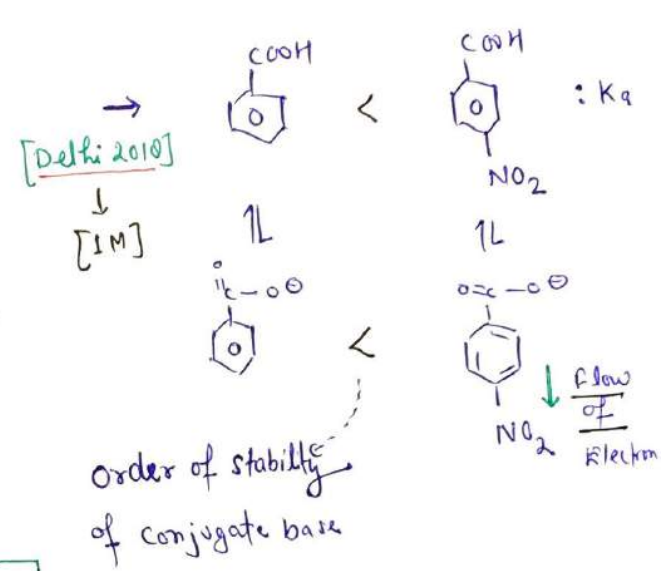 COOH
COOH
→ < : Ka
[Delhi 2010]
NO2
↓
[1M]
⇌ ⇌
O
C-O⊖ O=C-O⊖
<
Flow
of
Electron
NO2
order of stability
of conjugate base